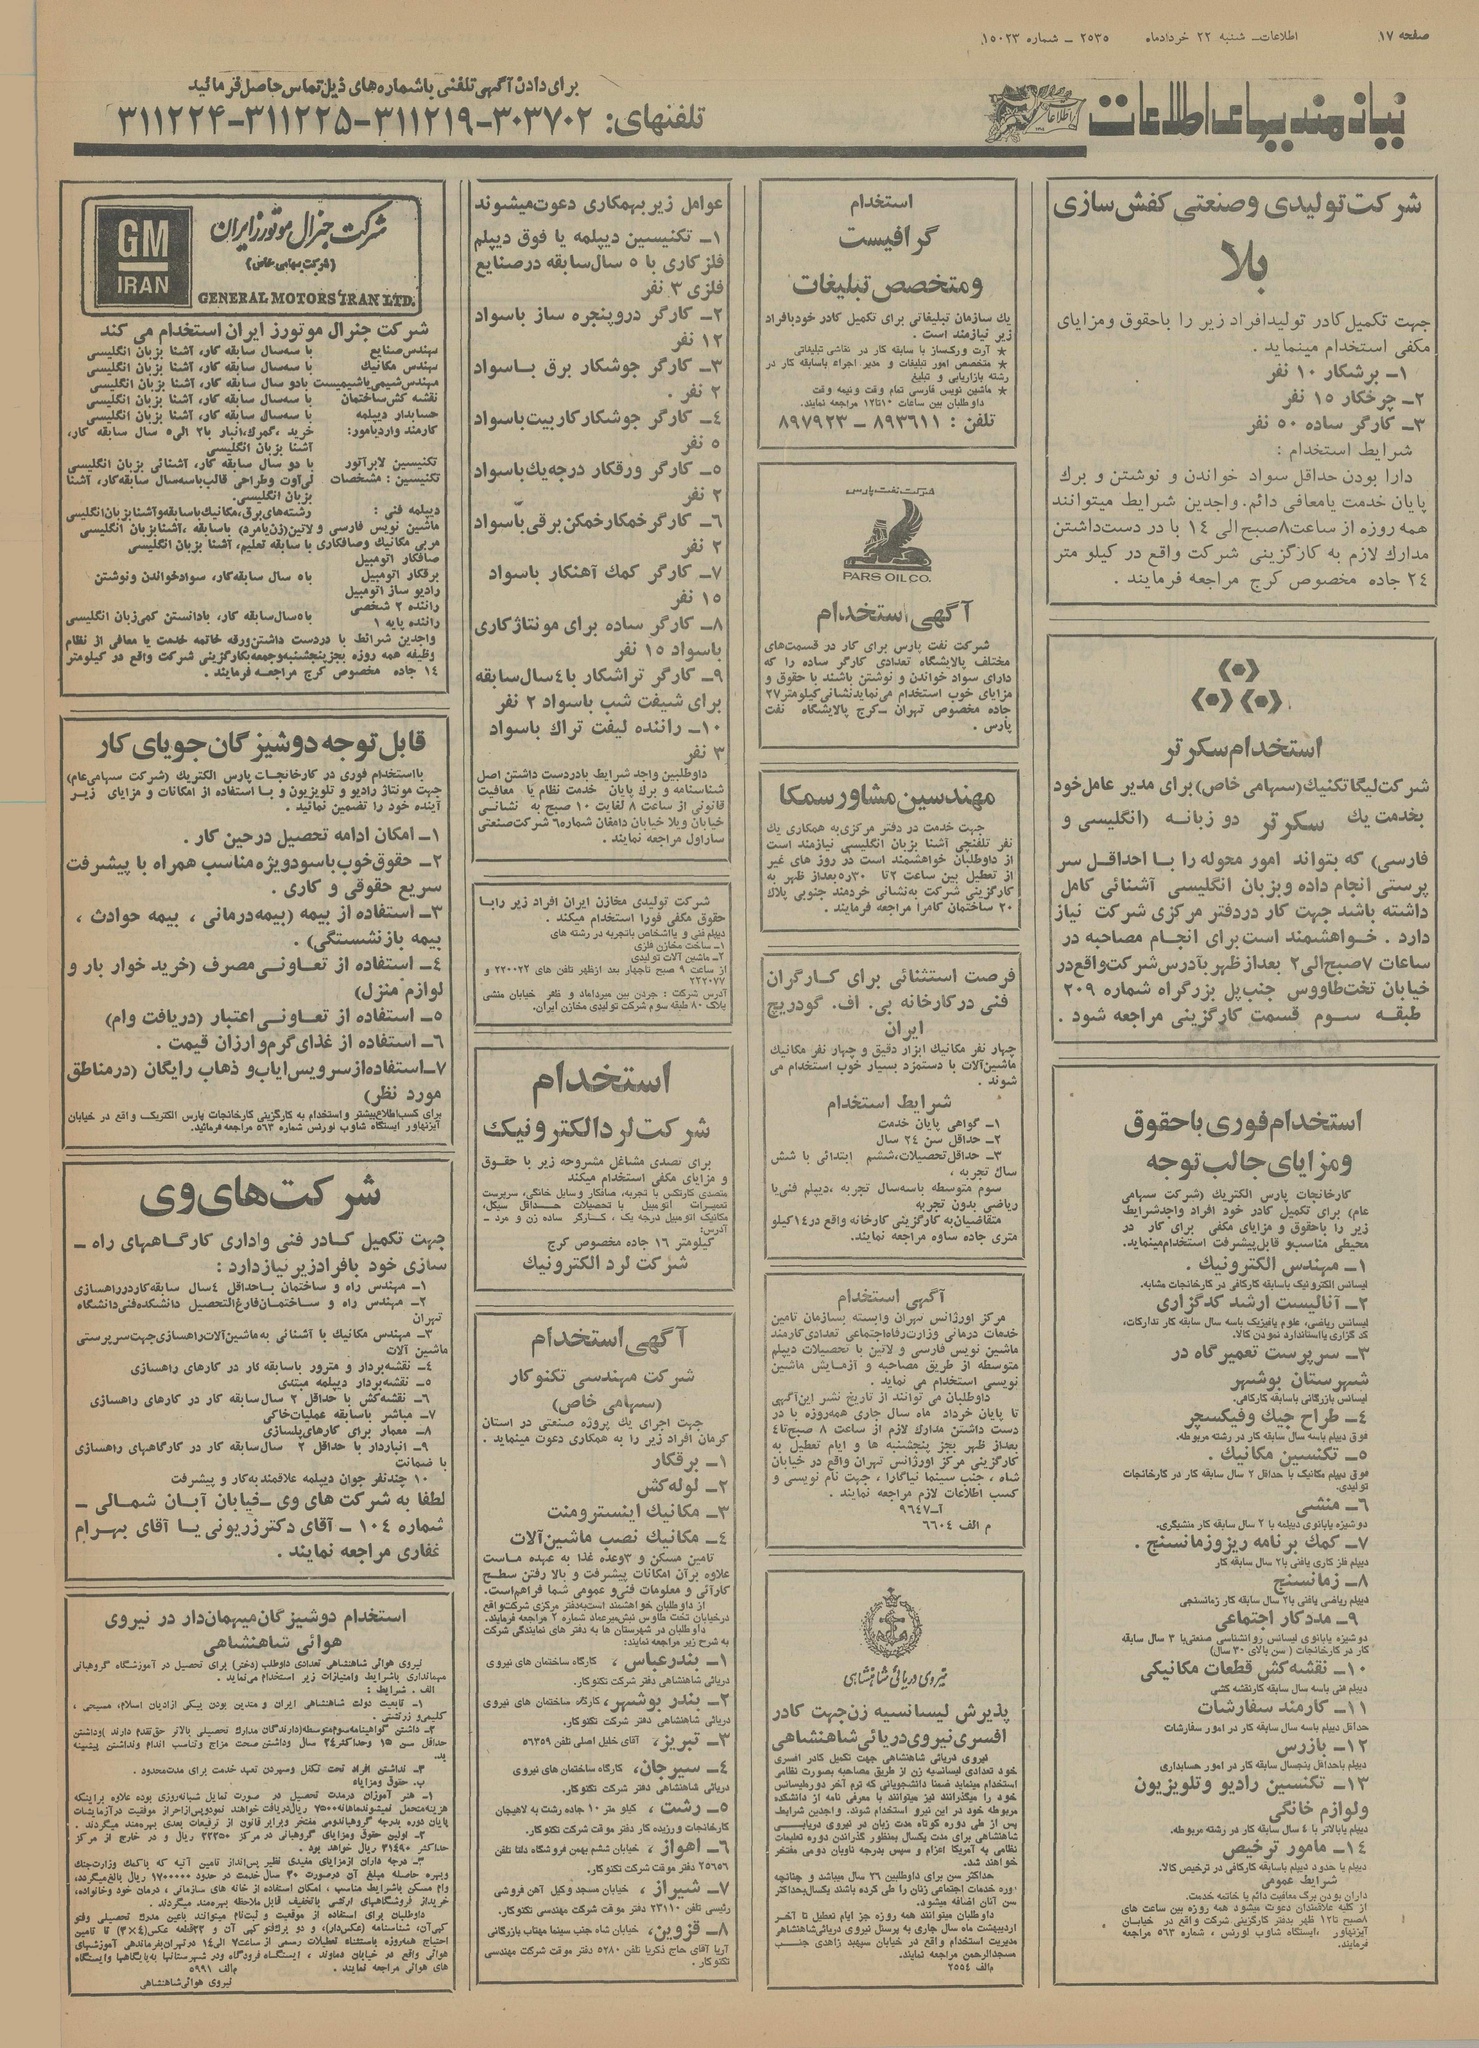 صفحه ۱۷
اطلاعات ـ شنبه ۲۲ خردادماه ۲۵۳۵ ـ شماره ۱۵۰۲۳
نیازمندیهای اطلاعات
برای دادن آگهی تلفنی باشماره‌های ذیل تماس حاصل فرمائید
تلفنهای: ۳۰۳۷۰۲-۳۱۱۲۱۹-۳۱۱۲۲۵-۳۱۱۲۲۴
شرکت تولیدی وصنعتی کفش سازی
بلا
جهت تکمیل کادر تولیدافراد زیر را باحقوق ومزایای
مکفی استخدام مینماید .
۱ـ برشکار ۱۰ نفر
۲ـ چرخکار ۱۵ نفر
۳ـ کارگر ساده ۵۰ نفر
شرایط استخدام :
دارا بودن حداقل سواد خواندن و نوشتن و برك
پایان خدمت یامعافی دائم. واجدین شرایط میتوانند
همه روزه از ساعت۸صبح الی ۱۴ با در دست‌داشتن
مدارك لازم به کارگزینی شرکت واقع در کیلو متر
۲۴ جاده مخصوص کرج مراجعه فرمایند .
استخدام سکرتر
شرکت لیگاتکنیك(سهامی خاص) برای مدیر عامل خود
بخدمت یك سکرتر دو زبانه (انگلیسی و
فارسی) که بتواند امور محوله را با احداقل سر
پرستی انجام داده وبزبان انگلیسی آشنائی کامل
داشته باشد جهت کار دردفتر مرکزی شرکت نیاز
دارد . خواهشمند است برای انجام مصاحبه در
ساعات ۷صبح الی۲ بعداز ظهر بآدرس شرکت واقع در
خیابان تخت‌طاووس جنب پل بزرگراه شماره ۲۰۹
طبقه سوم قسمت کارگزینی مراجعه شود .
استخدام فوری باحقوق
ومزایای جالب توجه
کارخانجات پارس الکتریك (شرکت سهامی
عام) برای تکمیل کادر خود افراد واجدشرایط
زیر را باحقوق و مزایای مکفی برای کار در
محیطی مناسب و قابل پیشرفت استخدام مینماید.
۱ـ مهندس الکترونیك .
لیسانس الکترونیك باسابقه کارکافی در کارخانجات مشابه.
۲ـ آنالیست ارشد کدگزاری
لیسانس ریاضی، علوم یافیزیك باسه سال سابقه کار تدارکات،
کد گزاری یااستاندارد نمودن کالا.
۳ـ سرپرست تعمیرگاه در
شهرستان بوشهر
لیسانس بازرگانی باسابقه کارکافی.
۴ـ طراح جیك وفیکسچر
فوق دیپلم باسه سال سابقه کار در رشته مربوطه.
۵ـ تکنسین مکانیك .
فوق دیپلم مکانیك با حداقل ۲ سال سابقه کار در کارخانجات
تولیدی.
۶ـ منشی
دوشیزه یابانوی دیپلمه با ۲ سال سابقه کار منشیگری.
۷ـ کمك برنامه ریزوزمانسنج .
دیپلم فلز کاری یافنی با۲ سال سابقه کار
۸ـ زمانسنج
دیپلم ریاضی یافنی با۲ سال سابقه کار زمانسنجی
۹ـ مددکار اجتماعی
دوشیزه یابانوی لیسانس روانشناسی صنعتی‌با ۳ سال سابقه
کار در کارخانجات (سن بالای ۳۰ سال)
۱۰ـ نقشه‌کش قطعات مکانیکی
دیپلم فنی باسه سال سابقه کارنقشه کشی
۱۱ـ کارمند سفارشات
حداقل دیپلم باسه سال سابقه کار در امور سفارشات
۱۲ـ بازرس
دیپلم باحداقل پنجسال سابقه کار در امور حسابداری
۱۳ـ تکنسین رادیو وتلویزیون
ولوازم خانگی
دیپلم یابالاتر با ٤ سال سابقه کار در رشته مربوطه.
۱۴ـ مامور ترخیص
دیپلم یا حدود دیپلم باسابقه کارکافی در ترخیص کالا.
شرایط عمومی
داران بودن برگ معافیت دائم یا خاتمه خدمت.
از کلیه علاقمندان دعوت میشود همه روزه بین ساعت های
۸صبح تا۱۲ ظهر بدفتر کارگزینی شرکت واقع در خیابان
آیزنهاور ،ایستگاه شاوب لورنس ، شماره ۵۶۳ مراجعه
فرمایند.
استخدام
گرافیست
ومتخصص تبلیغات
یك سازمان تبلیغاتی برای تکمیل کادر خودبافراد
زیر نیازمند است .
★ آرت ورك‌ساز با سابقه کار در نقاشی تبلیغاتی
★ متخصص امور تبلیغات و مدیر اجراء باسابقه کار در
رشته بازاریابی و تبلیغ
★ ماشین نویس فارسی تمام وقت ونیمه وقت
داوطلبان بین ساعات ۱۰تا۱۲ مراجعه نمایند.
تلفن : ۸۹۳۶۱۱ ـ ۸۹۷۹۲۳
شرکت نفت پارس
PARS OIL CO.
آگهی استخدام
شرکت نفت پارس برای کار در قسمت‌های
مختلف پالایشگاه تعدادی کارگر ساده را که
دارای سواد خواندن و نوشتن باشند با حقوق و
مزایای خوب استخدام می‌نماید‌نشانی کیلومتر۲۷
جاده مخصوص تهران ـ‌کرج پالایشگاه نفت
پارس .
مهندسین مشاور سمکا
جهت خدمت در دفتر مرکزی‌به همکاری یك
نفر تلفنچی آشنا بزبان انگلیسی نیازمند است
از داوطلبان خواهشمند است در روز های غیر
از تعطیل بین ساعت ۲تا ۵ر۳۰ بعداز ظهر به
کارگزینی شرکت به‌نشانی خردمند جنوبی پلاك
۲۰ ساختمان کامرا مراجعه فرمایند .
فرصت استثنائی برای کارگران
فنی درکارخانه بی. اف. گودریچ
ایران
چهار نفر مکانیك ابزار دقیق و چهار نفر مکانیك
ماشین‌آلات با دستمزد بسیار خوب استخدام می
شوند .
شرایط استخدام
۱ـ گواهی پایان خدمت
۲ـ حداقل سن ۲۴ سال
۳ـ حداقل تحصیلات،ششم ابتدائی با شش
سال تجربه ،
سوم متوسطه باسه‌سال تجربه ،دیپلم فنی‌یا
ریاضی بدون تجربه
متقاضیان‌به کارگزینی کارخانه واقع در۱۴کیلو
متری جاده ساوه مراجعه نمایند.
آگهی استخدام
مرکز اورژانس تهران وابسته بسازمان تامین
خدمات درمانی وزارت رفاه‌اجتماعی تعدادی‌کارمند
ماشین نویس فارسی و لاتین با تحصیلات دیپلم
متوسطه از طریق مصاحبه و آزمایش ماشین
نویسی استخدام می نماید .
داوطلبان می توانند از تاریخ نشر این‌آگهی
تا پایان خرداد ماه سال جاری همه‌روزه با در
دست داشتن مدارك لازم از ساعت ۸ صبح‌تا٤
بعداز ظهر بجز پنجشنبه ها و ایام تعطیل به
کارگزینی مرکز اورژانس تهران واقع در خیابان
شاه ، جنب سینما نیاگارا ، جهت نام نویسی و
کسب اطلاعات لازم مراجعه نمایند .
آ-۹۶۴۷
م الف ۶۶۰۴
نیروی دریائی شاهنشاهی
پذیرش لیسانسیه زن جهت کادر
افسری نیروی دریائی شاهنشاهی
نیروی دریائی شاهنشاهی جهت تکمیل کادر افسری
خود تعدادی لیسانسیه زن از طریق مصاحبه بصورت نظامی
استخدام مینماید ضمنا دانشجویانی که ترم آخر دوره‌لیسانس
خود را میگذرانند نیز میتوانند با معرفی نامه از دانشکده
مربوطه خود در این نیرو استخدام شوند. واجدین شرایط
پس از طی دوره کوتاه مدت زبان در نیروی دریایی
شاهنشاهی برای مدت یکسال بمنظور گذراندن دوره تعلیمات
نظامی به آمریکا اعزام و سپس بدرجه ناویان دومی مفتخر
خواهند شد.
حداکثر سن برای داوطلبین ۲۶ سال میباشد و چنانچه
دوره خدمات اجتماعی زنان را طی کرده باشند یکسال‌بحداکثر
سن آنان اضافه میشود.
داوطلبان میتوانند همه روزه جز ایام تعطیل تا آخر
اردیبهشت ماه سال جاری به پرسنل نیروی دریائی‌شاهنشاهی
مدیریت استخدام واقع در خیابان سپهبد زاهدی جنب
مسجدالرحمن مراجعه نمایند.
م‌الف ۲۵۵۴
عوامل زیر بهمکاری دعوت میشوند
۱ـ تکنیسین دیپلمه یا فوق دیپلم
فلزکاری با ۵ سال سابقه در صنایع
فلزی ۳ نفر
۲ـ کارگر دروپنجره ساز باسواد
۱۲ نفر
۳ـ کارگر جوشکار برق باسواد
۲ نفر .
٤ـ کارگر جوشکار کاربیت باسواد
۵ نفر
۵ـ کارگر ورقکار درجه یك باسواد
۲ نفر
۶ـ کارگر خمکار خمکن برقی باسواد
۲ نفر
۷ـ کارگر کمك آهنکار باسواد
۱۵ نفر
۸ـ کارگر ساده برای مونتاژکاری
باسواد ۱۵ نفر
۹ـ کارگر تراشکار با٤سال سابقه
برای شیفت شب باسواد ۲ نفر
۱۰ـ راننده لیفت تراك باسواد
۳ نفر
داوطلبین واجد شرایط بادردست داشتن اصل
شناسنامه و برك پایان خدمت نظام یا معافیت
قانونی از ساعت ۸ لغایت ۱۰ صبح به نشانی
خیابان ویلا خیابان دامغان شماره۶ شرکت‌صنعتی
ساراول مراجعه نمایند .
شرکت تولیدی مخازن ایران افراد زیر رابا
حقوق مکفی فورا استخدام میکند .
دیپلم فنی و یااشخاص باتجربه در رشته های
۱ـ ساخت مخازن فلزی
۲ـ ماشین آلات تولیدی
از ساعت ۹ صبح تاچهار بعد ازظهر تلفن های ۲۲۰۰۲۲ و
۲۲۲۰۷۷
آدرس شرکت : جردن بین میرداماد و ظفر خیابان منشی
پلاك ۸۰ طبقه سوم شرکت تولیدی مخازن ایران.
استخدام
شرکت لرد الکترونیك
برای تصدی مشاغل مشروحه زیر با حقوق
و مزایای مکفی استخدام میکند
متصدی کارتکس با تجربه، صافکار وسایل خانگی، سرپرست
تعمیرات اتومبیل با تحصیلات حداقل سیکل،
مکانیك اتومبیل درجه یك ، کارگر ساده زن و مرد ـ
آدرس:
کیلومتر ۱۶ جاده مخصوص کرج
شرکت لرد الکترونیك
آگهی استخدام
شرکت مهندسی تکنوکار
(سهامی خاص)
جهت اجرای یك پروژه صنعتی در استان
کرمان افراد زیر را به همکاری دعوت مینماید .
۱ـ برقکار
۲ـ لوله‌کش
۳ـ مکانیك اینسترومنت
٤ـ مکانیك نصب ماشین‌آلات
تامین مسکن و ۳وعده غذا به عهده ماست
علاوه برآن امکانات پیشرفت و بالا رفتن سطح
کارآئی و معلومات فنی‌و عمومی شما فراهم‌است.
از داوطلبان خواهشمند است‌به‌دفتر مرکزی شرکت‌واقع
درخیابان تخت طاوس نبش‌میرعماد شماره ۲ مراجعه فرمایند.
داوطلبان در شهرستان ها به دفتر های نمایندگی شرکت
به شرح زیر مراجعه نمایند:
۱ـ بندرعباس ، کارگاه ساختمان های نیروی
دریائی شاهنشاهی دفتر شرکت تکنوکار.
۲ـ بندر بوشهر، کارگاه ساختمان های نیروی
دریائی شاهنشاهی دفتر شرکت تکنوکار.
۳ـ تبریز، آقای خلیل اصلی تلفن ۵۶۳۵۹
٤ـ سیرجان، کارگاه ساختمان های نیروی
دریائی شاهنشاهی دفتر شرکت تکنوکار.
۵ـ رشت ، کیلو متر ۱۰ جاده رشت به لاهیجان
کارخانجات ورزیده کار دفتر موقت شرکت تکنوکار.
۶ـ اهواز ، خیابان ششم بهمن فروشگاه دلتا تلفن
۲۵۶۵۶ دفتر موقت شرکت تکنوکار.
۷ـ شیراز ، خیابان مسجد وکیل آهن فروشی
رئیسی تلفن ۲۳۱۱۰ دفتر موقت شرکت مهندسی تکنوکار.
۸ـ قزوین، خیابان شاه جنب سینما مهتاب بازرگانی
آریا آقای حاج ذکریا تلفن ۵۲۸۰ دفتر موقت شرکت مهندسی
تکنوکار .
شرکت جنرال موتورز ایران
(شرکت سهامی خاص)
GM
IRAN
GENERAL MOTORS IRAN LTD.
شرکت جنرال موتورز ایران استخدام می کند
مهندس‌صنایع با سه‌سال سابقه کار، آشنا بزبان انگلیسی
مهندس مکانیك با سه‌سال سابقه کار، آشنا بزبان انگلیسی
مهندس‌شیمی‌یاشیمیست بادو سال سابقه کار، آشنا بزبان انگلیسی
نقشه کش‌ساختمان با سه سال سابقه کار، آشنا بزبان انگلیسی
حسابدار دیپلمه با سه سال سابقه کار، آشنا بزبان انگلیسی
کارمند واردبامور: خرید ،گمرك،انبار با۲ الی۵ سال سابقه کار،
آشنا بزبان انگلیسی
تکنیسین لابرآتور با دو سال سابقه کار، آشنائی بزبان انگلیسی
تکنیسین : مشخصات لی‌آوت وطراحی قالب‌باسه‌سال سابقه‌کار، آشنا
بزبان انگلیسی.
دیپلمه فنی : رشته‌های برق،مکانیك‌باسابقه‌وآشنابزبان‌انگلیسی
ماشین نویس فارسی و لاتین(زن‌یامرد) باسابقه ،آشنابزبان انگلیسی
مربی مکانیك وصافکاری با سابقه تعلیم، آشنا بزبان انگلیسی
صافکار اتومبیل
برقکار اتومبیل با۵ سال سابقه‌کار، سوادخواندن ونوشتن
رادیو ساز اتومبیل
راننده ۲ شخصی
راننده پایه ۱ با۵سال‌سابقه کار، بادانستن کمی‌زبان انگلیسی
واجدین شرائط با دردست داشتن‌ورقه خاتمه خدمت یا معافی از نظام
وظیفه همه روزه بجزپنجشنبه‌وجمعه‌بکارگزینی شرکت واقع در کیلومتر
۱۴ جاده مخصوص کرج مراجعه فرمایند .
قابل توجه دوشیزگان جویای کار
بااستخدام فوری در کارخانجات پارس الکتریك (شرکت سهامی‌عام)
جهت مونتاژ رادیو و تلویزیون و با استفاده از امکانات و مزایای زیر
آینده خود را تضمین نمائید .
۱ـ امکان ادامه تحصیل درحین کار .
۲ـ حقوق خوب باسودویژه مناسب همراه با پیشرفت
سریع حقوقی و کاری .
۳ـ استفاده از بیمه (بیمه‌درمانی ، بیمه حوادث ،
بیمه بازنشستگی) .
٤ـ استفاده از تعاونی مصرف (خرید خوار بار و
لوازم منزل)
۵ـ استفاده از تعاونی اعتبار (دریافت وام)
۶ـ استفاده از غذای گرم‌وارزان قیمت .
۷ـ استفاده ازسرویس‌ایاب‌و ذهاب رایگان (در مناطق
مورد نظر)
برای کسب اطلاع‌بیشتر واستخدام به کارگزینی کارخانجات پارس الکتریك واقع در خیابان
آیزنهاور ایستگاه شاوب لورنس شماره ۵۶۳ مراجعه فرمائید.
شرکت های وی
جهت تکمیل کادر فنی واداری کارگاههای راه ـ
سازی خود بافرادزیر نیاز دارد :
۱ـ مهندس راه و ساختمان باحداقل ٤سال سابقه‌کاردرراهسازی
۲ـ مهندس راه و ساختمان‌فارغ‌التحصیل دانشکده‌فنی‌دانشگاه
تهران
۳ـ مهندس مکانیك با آشنائی به‌ماشین‌آلات‌راهسازی‌جهت‌سرپرستی
ماشین آلات
٤ـ نقشه‌بردار و متره‌ور باسابقه کار در کارهای راهسازی
۵ـ نقشه‌بردار دیپلمه مبتدی
۶ـ نقشه‌کش با حداقل ۲ سال‌سابقه کار در کارهای راهسازی
۷ـ مباشر باسابقه عملیات‌خاکی
۸ـ معمار برای کارهای‌پلسازی
۹ـ انباردار با حداقل ۲ سال‌سابقه کار در کارگاههای راهسازی
با ضمانت
۱۰ چندنفر جوان دیپلمه علاقمند به‌کار و پیشرفت
لطفا به شرکت های وی ـ خیابان آبان شمالی ـ
شماره ۱۰۴ ـ آقای دکترزریونی یا آقای بهرام
غفاری مراجعه نمایند .
استخدام دوشیزگان میهمان‌دار در نیروی
هوائی شاهنشاهی
نیروی هوائی شاهنشاهی تعدادی داوطلب (دختر) برای تحصیل در آموزشگاه گروهبانی
میهمانداری باشرایط وامتیازات زیر استخدام می‌نماید .
الف . شرایط :
۱ـ تابعیت دولت شاهنشاهی ایران و متدین بودن بیکی ازادیان اسلام، مسیحی ،
کلیمی‌و زرتشتی .
۲ـ داشتن گواهینامه‌سوم‌متوسطه(دارندگان مدارك تحصیلی بالاتر حق‌تقدم دارند )وداشتن
حداقل سن ۱۵ وحداکثر۲۴ سال وداشتن صحت مزاج وتناسب اندام ونداشتن پیشینه
بد.
۳ـ نداشتن افراد تحت تکفل وسپردن تعهد خدمت برای مدت‌محدود .
ب. حقوق ومزایاو
۱ـ هنر آموزان درمدت تحصیل در صورت تمایل شبانه‌روزی بوده علاوه براینکه
هزینه‌متحمل نمیشوندماهانه۷۵۰۰ ریال‌دریافت خواهند نمودوپس‌ازاحراز موفقیت درآزمایشات
پایان دوره بدرجه گروهبان‌دومی مفتخر وبرابر قانون از ترفیعات بعدی بهره‌مند میگردند .
۲ـ اولین حقوق ومزایای گروهبانی در مرکز ۲۲۳۵۰ ریال و در خارج از مرکز
حداکثر ۳۱۴۹۰ ریال خواهد بود .
۳ـ درجه داران ازمزایای مفیدی نظیر پس‌انداز تامین آتیه که باکمك وزارت‌جنك
وبهره حاصله مبلغ آن درصورت ۳۰ سال خدمت در حدود ۱۷۰۰۰۰۰ ریال بالغ‌میگردد،
وام مسکن باشرایط مناسب ، امکان استفاده از خانه های سازمانی ، درمان خود وخانواده،
خریداز فروشگاههای ارتشی باتخفیف قابل ملاحظه بهره‌مند میگردند .
داوطلبان برای استفاده از موقعیت و ثبت‌نام میتوانند باعین مدرك تحصیلی وفتو
کپی‌آن، شناسنامه (عکس‌دار)، و دو برك‌فتو کپی آن و ۲۲قطعه عکس(٤×۳) تا تامین
احتیاج همه‌روزه باستثناء تعطیلات رسمی از ساعت۷ الی۱۴ درتهران‌بفرماندهی آموزشهای
هوائی واقع در خیابان دماوند ، ایستگاه فرودگاه ودر شهرستانها به‌پایگاهها وایستگاه
های هوائی مراجعه نمایند .
م‌الف ۵۹۹۱
نیروی هوائی‌شاهنشاهی